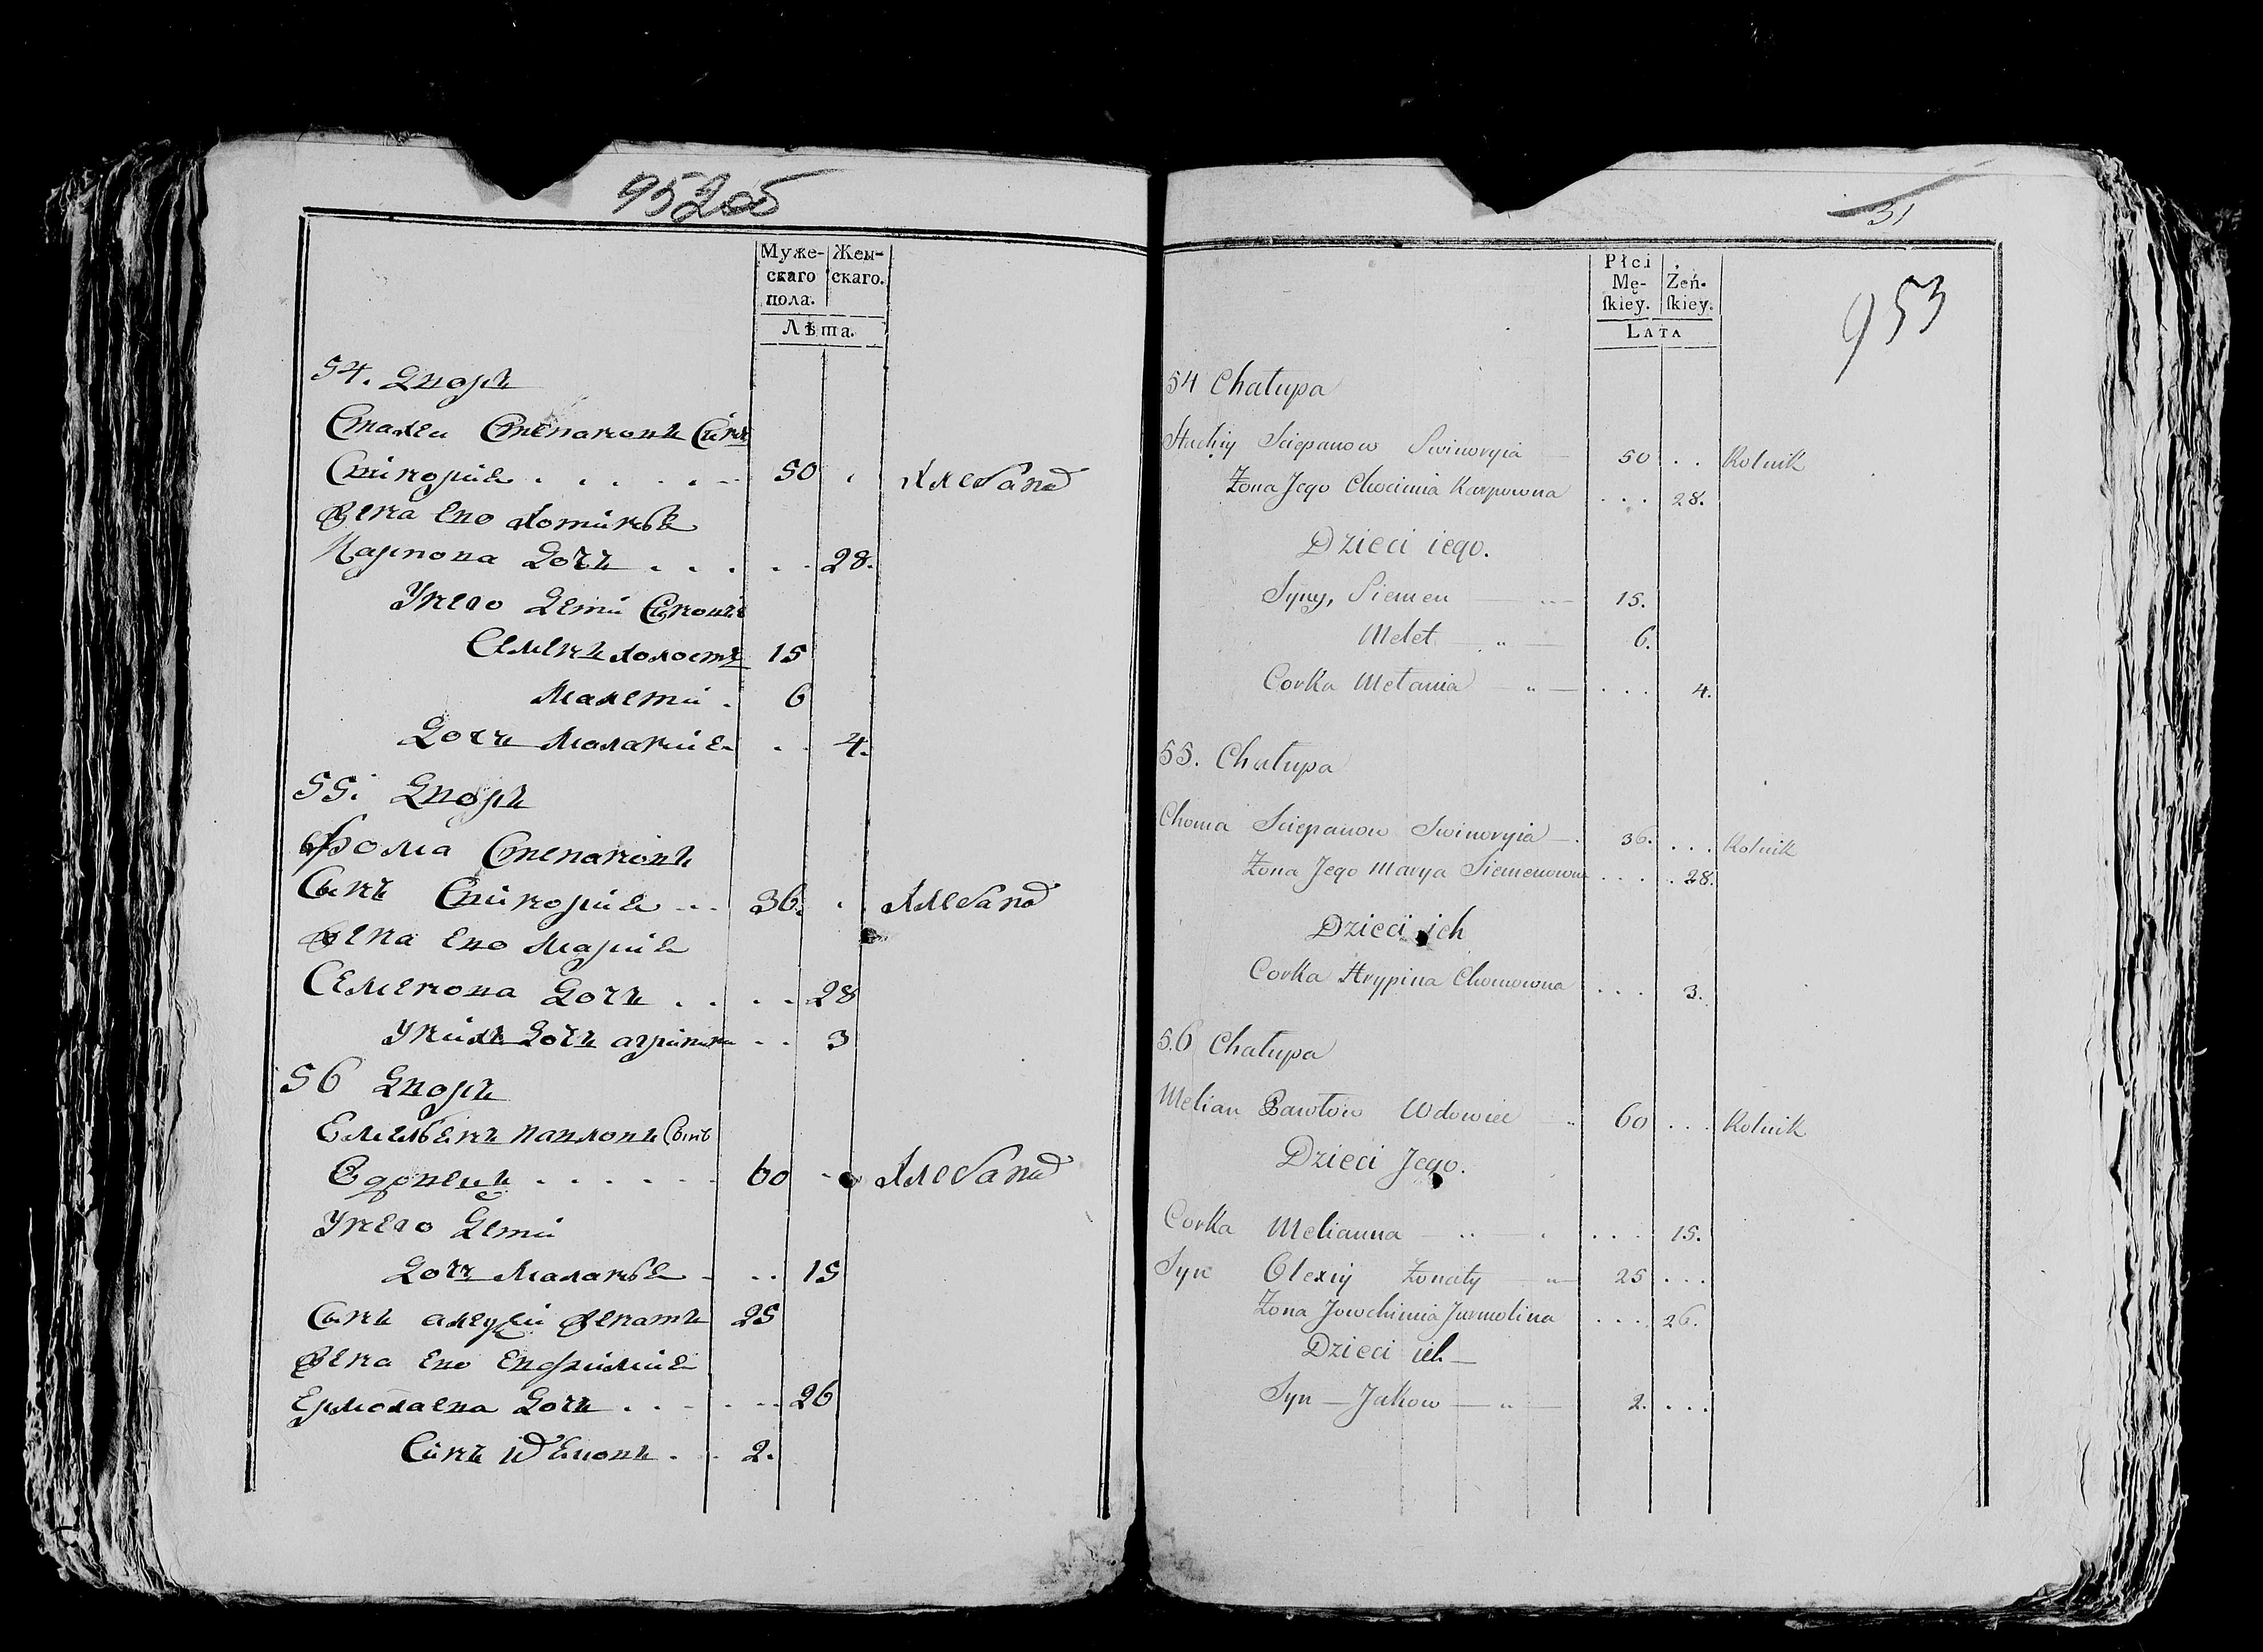 952об
Муже-
скаго
пола.
Жен-
скаго.
Лѣта.
54. Дворъ
Стахеи Степановъ Синъ
50 Хлебапа
Жена Ево Хотинья
Карпова Дочъ 28.
Унего Дети Синовя
Семенъ холостъ 15
Малетии 6
Дочъ Малания 4.
55. Дворъ
Фома Степановъ
Сынъ 36. Хлебапа
Жена Ево Мария
Семенова Дочъ 28
Унихъ Дочъ агрипина 3
56 Дворъ
Емельенъ павловъ Сынъ
Вдовецъ 60 Хлебапа
Унего Дети
Дочъ Маланья 15
Сынъ алеѯеи Женатъ 25
Жена Ево Енфимия
Ермолаева Дочъ 26
Синъ 2.
31
953
Płci
Mę-
ſkiey.
Żeń-
ſkiey.
LATA
54 Chałupa
Stachiy Sciepanow Swinoryia 50 Rolnik
Żona Jego Chocimia Karpowna 28.
Dzieci iego.
Syny, Siemen 15.
Melet 6.
Corka Mełania 4.
55. Chałupa
Choma Sciepanow Swinoryia 36. Rolnik
Żona Jego Marya Siemenowna 28.
Dzieci ich
Corka Hrypina Chomowna 3.
56 Chałupa
Melian Pawłow Wdowiec 60 Rolnik
Dzieci Jego.
Corka Melianna 15.
Syn Olexiy Żonaty 25
Żona Jowchimia Jurmolina 26.
Dzieci ich
Syn Jakow 2.